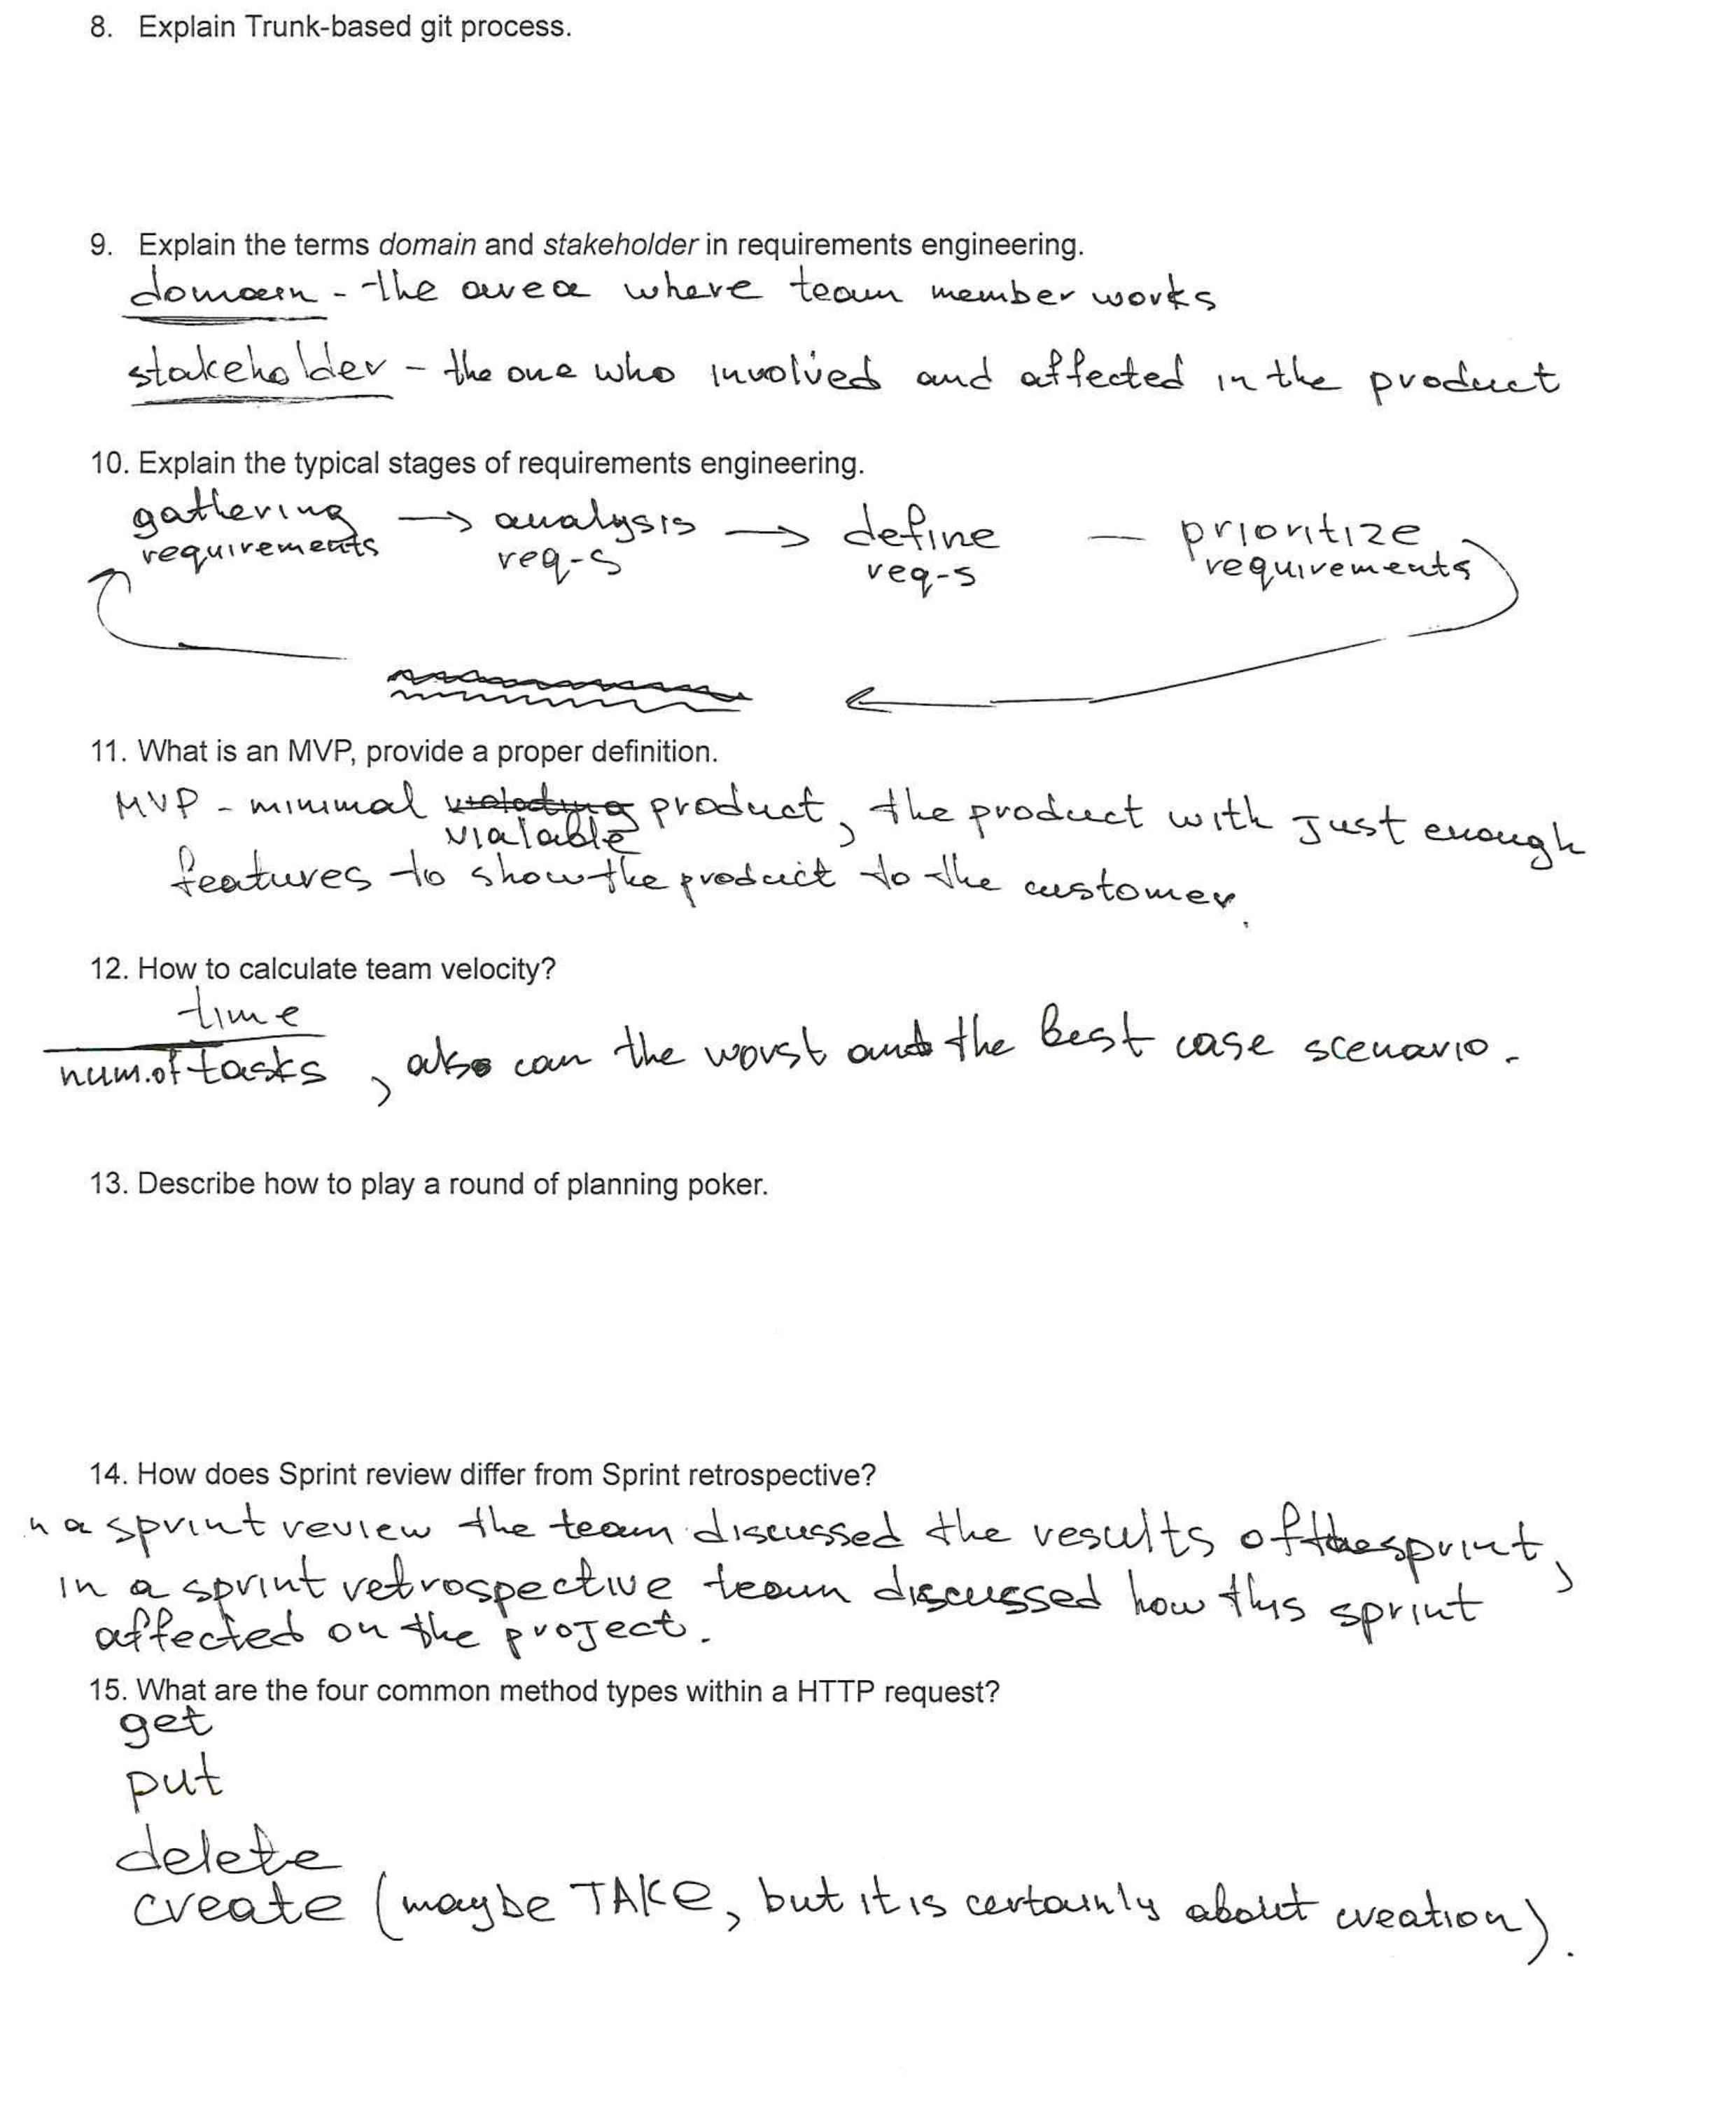 8. Explain Trunk-based git process.
9. Explain the terms domain and stakeholder in requirements engineering.
domain - the area where team member works
stakeholder - the one who involved and affected in the product
10. Explain the typical stages of requirements engineering.
gathering → analysis → define — prioritize
requirements req-s req-s requirements
11. What is an MVP, provide a proper definition.
MVP - minimal product, the product with just enough
vialable
features to show the product to the customer.
12. How to calculate team velocity?
time
num.of tasks , also can the worst and the best case scenario.
13. Describe how to play a round of planning poker.
14. How does Sprint review differ from Sprint retrospective?
n a sprint review the team discussed the results of the sprint,
in a sprint retrospective team discussed how this sprint
affected on the project.
15. What are the four common method types within a HTTP request?
get
put
delete
create (maybe TAKE, but it is certainly about creation).